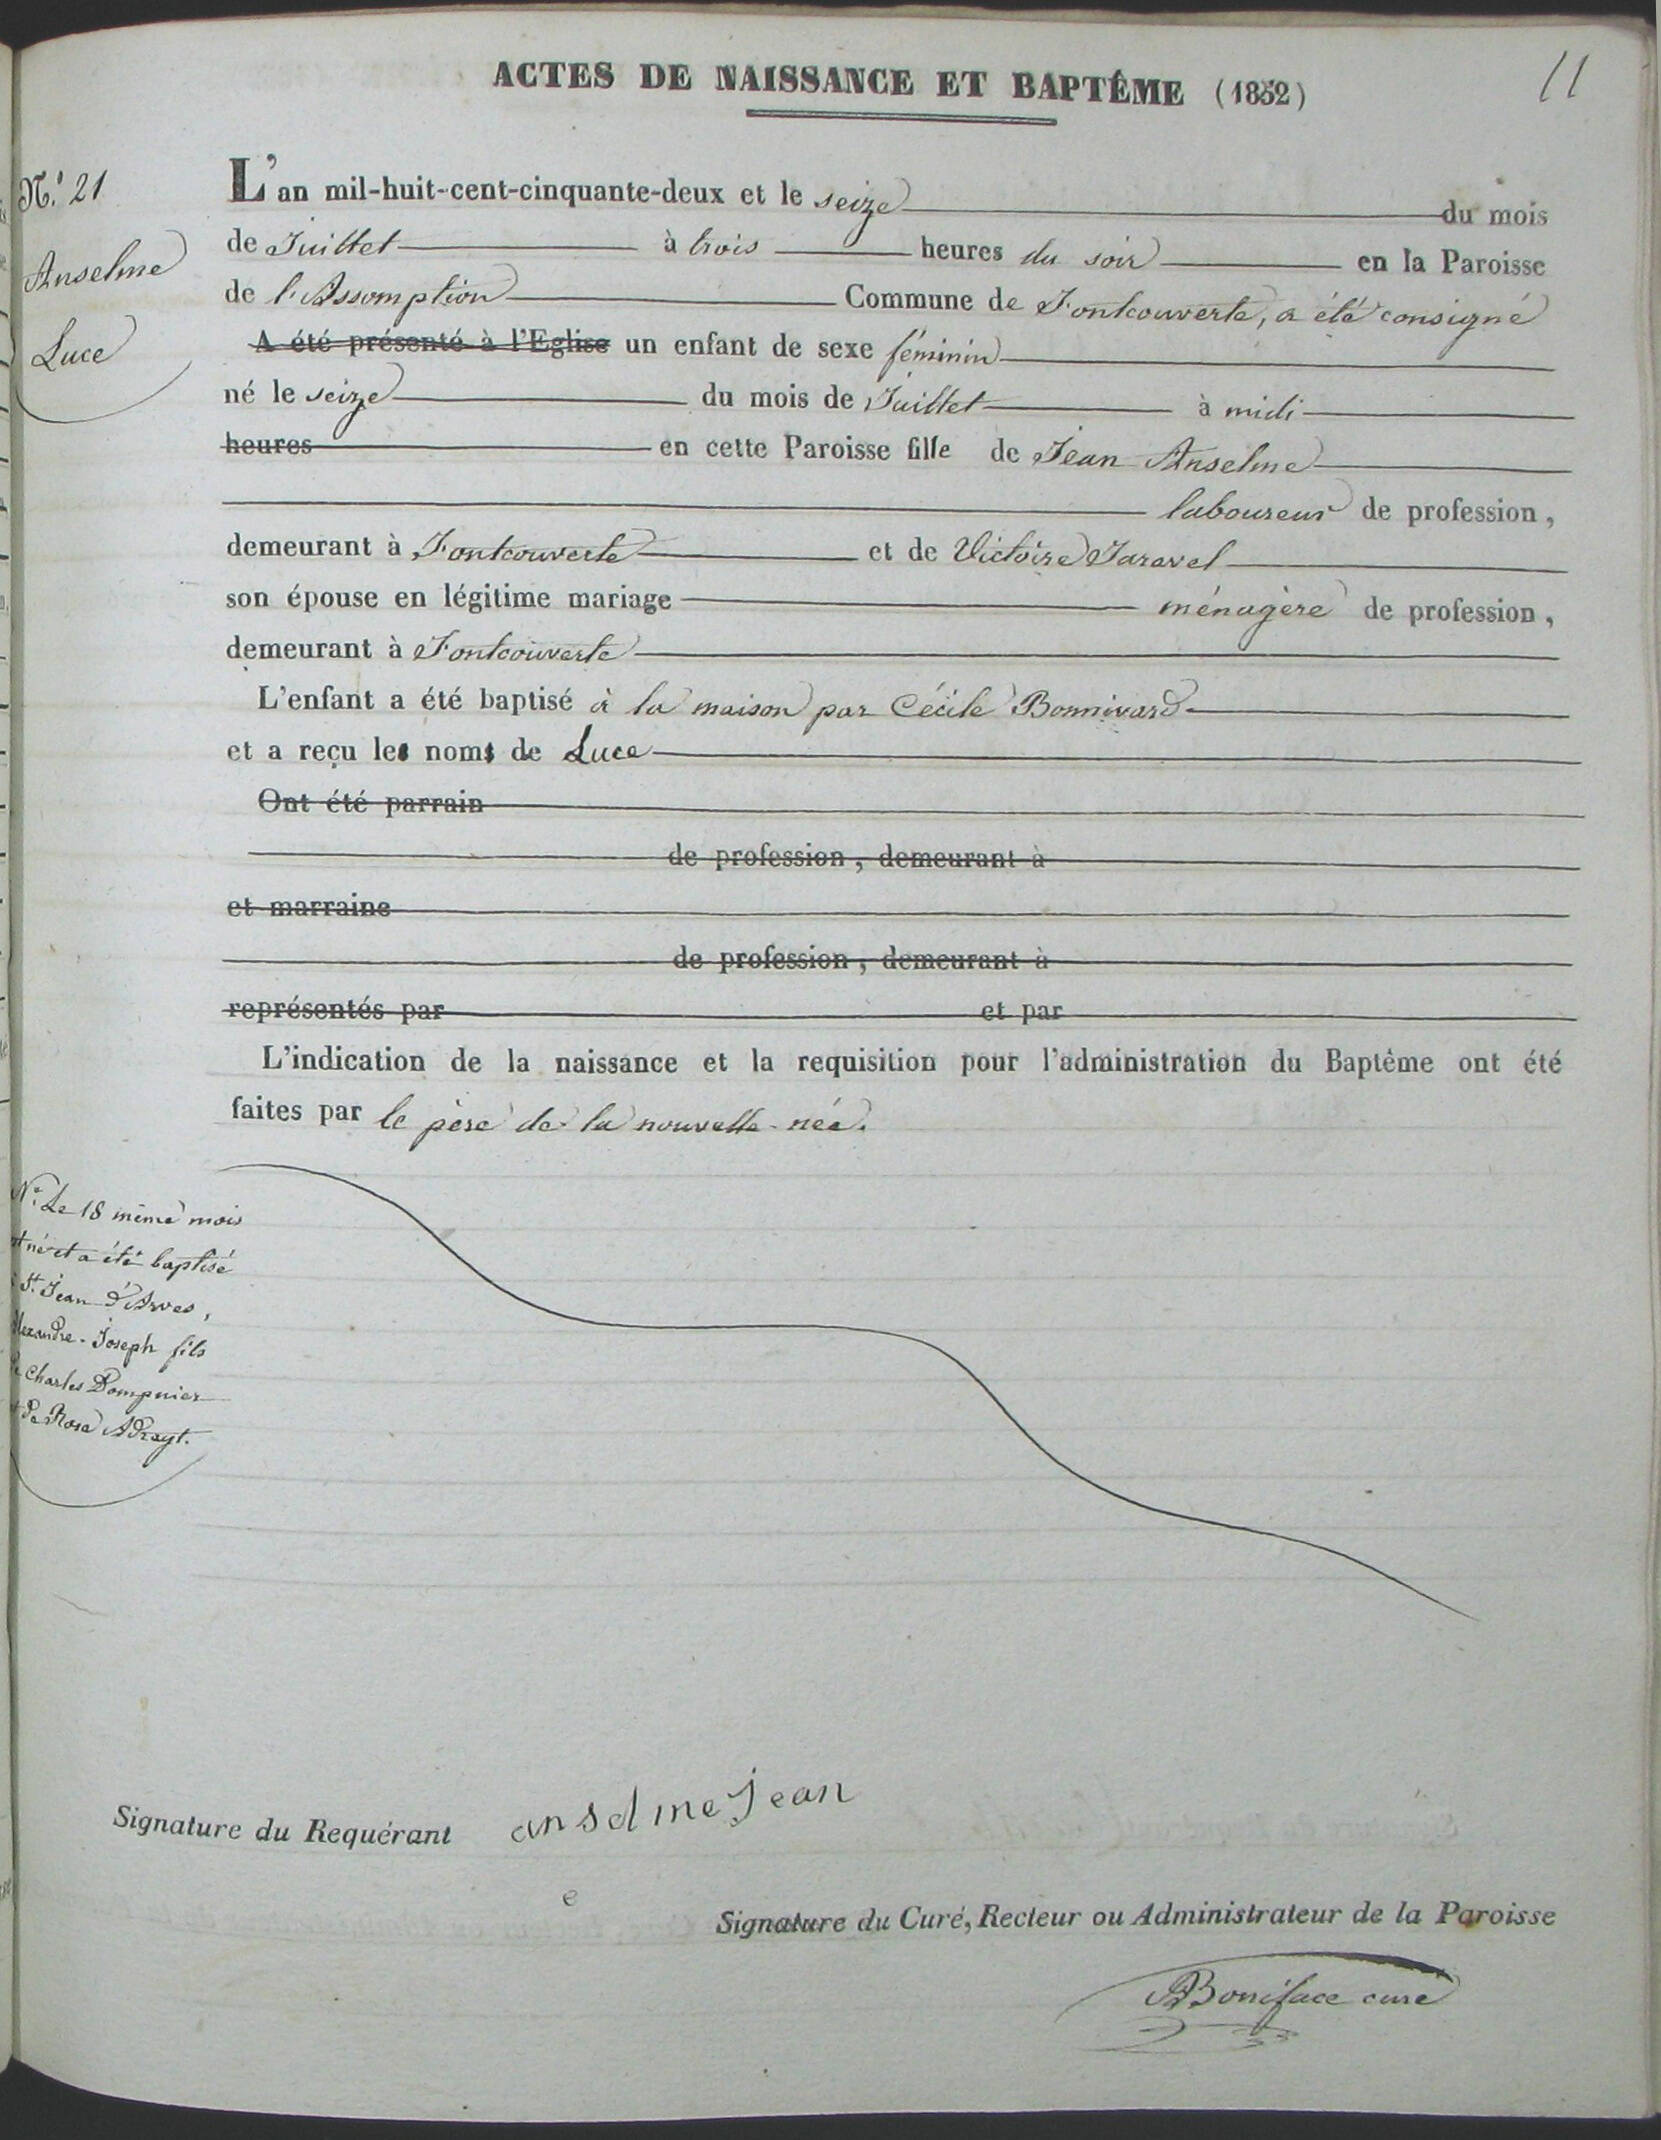 ACTES DE NAISSANCE ET BAPTÊME (1852)
11
N.º 21
Anselme
Luce
L'an mil-huit-cent-cinquante-deux et le seize du mois
de Juillet à trois heures du soir en la Paroisse
de l'Assomption Commune de Fontcouverte, a été consigné
A été présenté à l'Eglise un enfant de sexe féminin
né le seize du mois de Juillet à midi
heures en cette Paroisse fille de Jean Anselme
laboureur de profession,
demeurant à Fontcouverte et de Victoire Taravel
son épouse en légitime mariage ménagère de profession,
demeurant à Fontcouverte
L'enfant a été baptisé à la maison par Cécile Bonnivard
et a reçu les noms de Luce
Ont été parrain
de profession, demeurant à
et marraine
de profession, demeurant à
représentés par et par
L'indication de la naissance et la requisition pour l'administration du Baptême ont été
faites par le père de la nouvelle-née.
Nª. Le 18 même mois
né et a été baptisé
St. Jean d'Arves,
Alexandre-Joseph fils
de Charles Dompnier
et de Rose Adrayt.
Signature du Requérant anselme jean
e
Signature du Curé, Recteur ou Administrateur de la Paroisse
Boniface curé